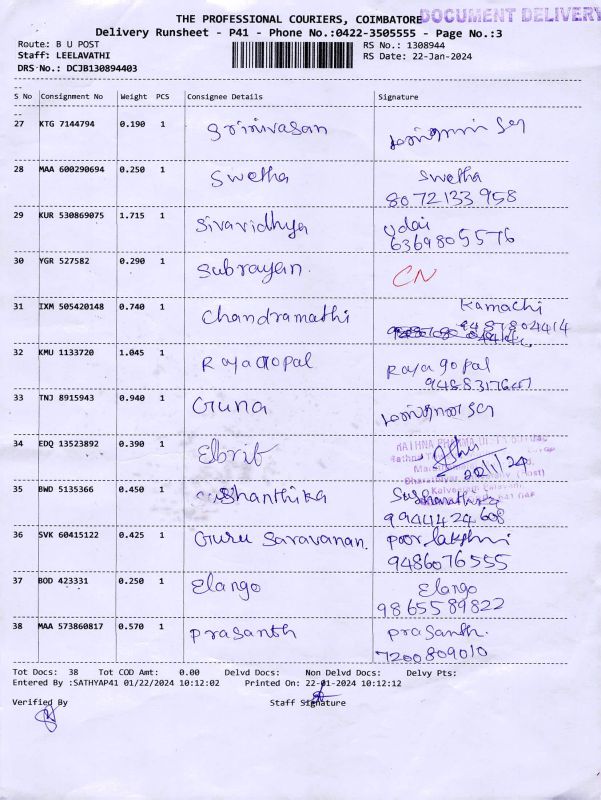 THE PROFESSIONAL COURIERS, COIMBATORE DOCUMENT DELIVERY
Delivery Runsheet - P41 - Phone No.:0422-3505555 - Page No.:3
Route: B U POST RS No.: 1308944
Staff: LEELAVATHI RS Date: 22-Jan-2024
DRS No.: DCJB130894403
S No Consignment No Weight PCS Consignee Details Signature
27 KTG 7144794 0.190 1 Srinivasan
28 MAA 600290694 0.250 1 Swetha Swetha
8072133958
29 KUR 530869075 1.715 1 Sivavidhya Udai
6369805576
30 YGR 527582 0.290 1 Subrayan. CN
31 IXM 505420148 0.740 1 Chandramathi Kamachi
9487804414
32 KMU 1133720 1.045 1 Rajagopal Rajagopal
33 TNJ 8915943 0.940 1 Guna
34 EDQ 13523892 0.390 1 Ebrit
35 BWD 5135366 0.450 1 Shanthika
9944424608
36 SVK 60415122 0.425 1 Guru Saravanan.
9486076555
37 BOD 423331 0.250 1 Elango Elango
9865589822
38 MAA 573860817 0.570 1 Prasanth Prasanth.
7200809010
Tot Docs: 38 Tot COD Amt: 0.00 Delvd Docs: Non Delvd Docs: Delvy Pts:
Entered By :SATHYAP41 01/22/2024 10:12:02 Printed On: 22-01-2024 10:12:12
Verified By Staff Signature